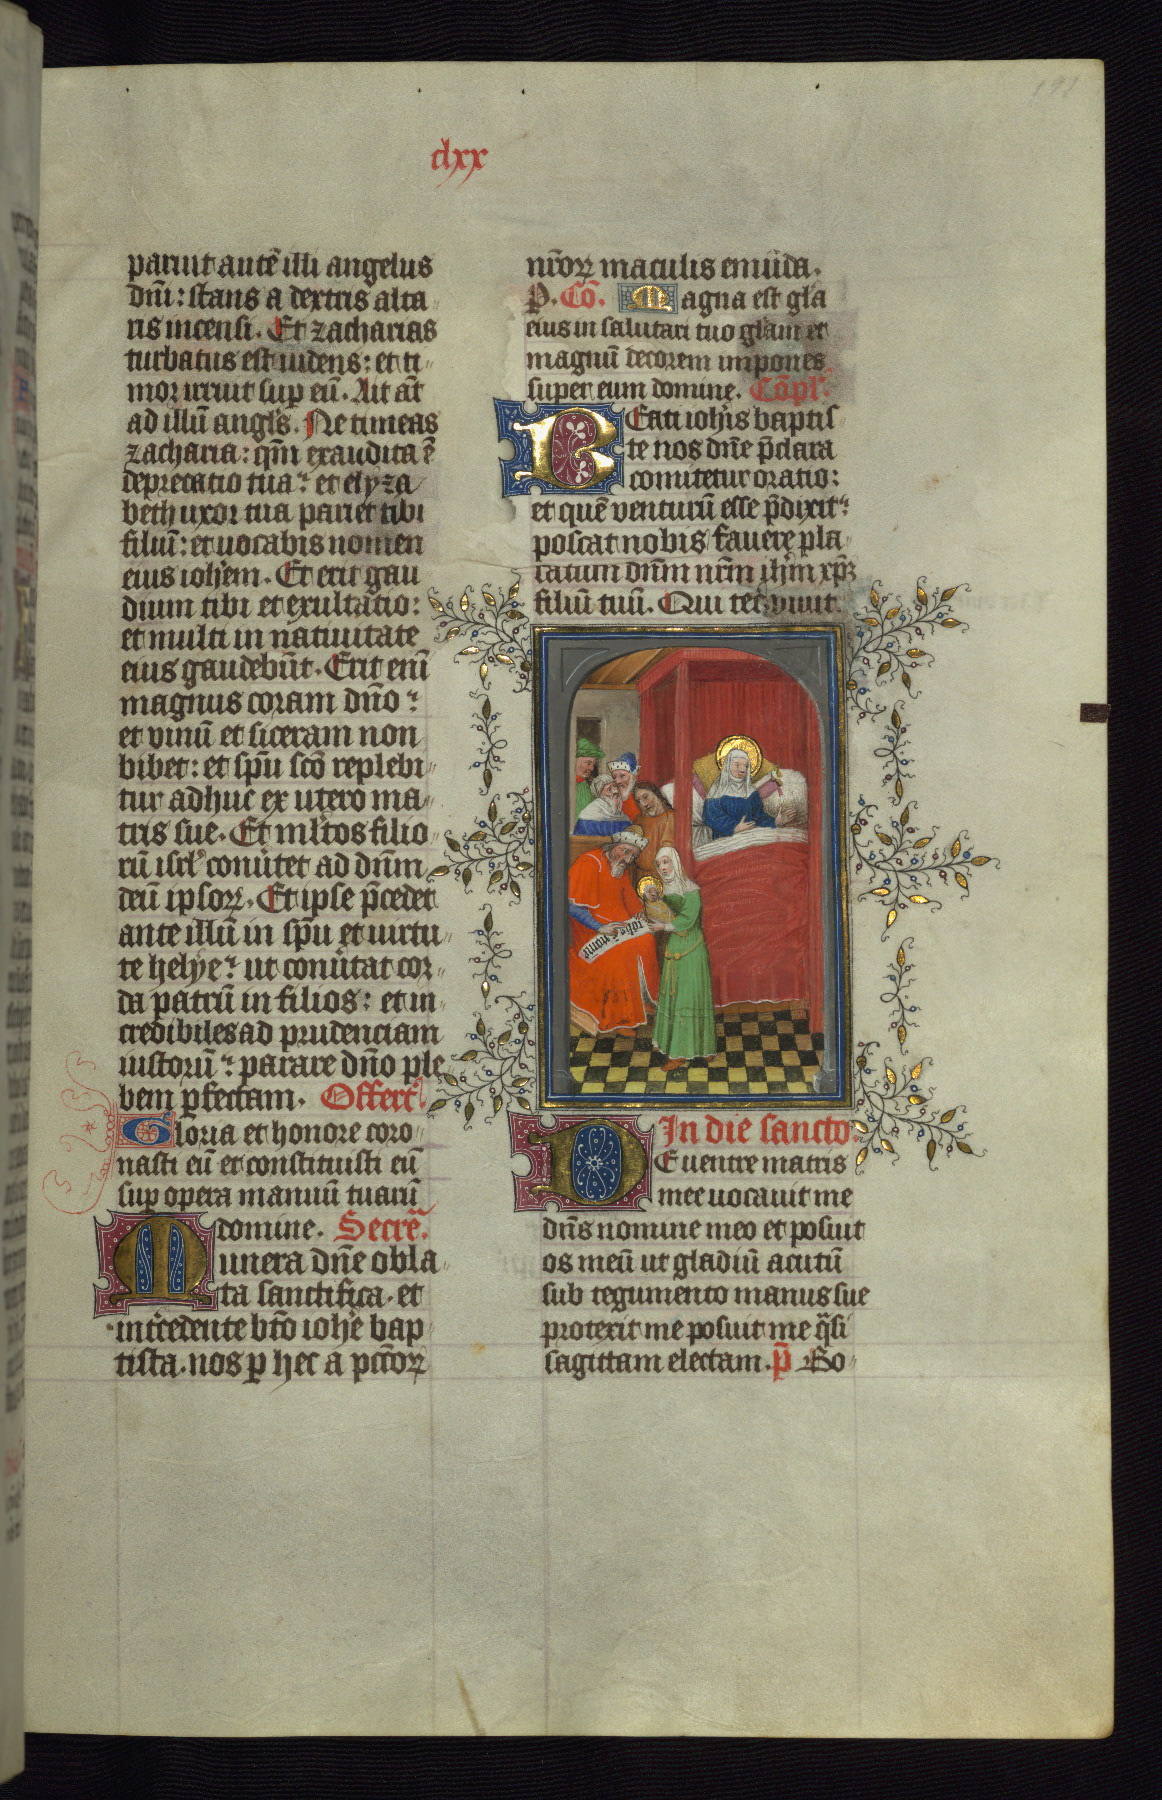 191
clxx
paruit autē illi angelus
dn̄i: stans a dextris alta
ris incensi. Et zacharias
turbatus est uidens: et ti
mor irruit sup eū. Ait aūt
ad illū angl's. Ne timeas
zacharia: qm̄ exaudita ē
deprecatio tua: et elyza
beth uxor tua pariet tibi
filiū: et uocabis nomen
eius ioh'em. Et erit gau
dium tibi et exultatio:
et multi in natiuitate
eius gaudebūt. Erit eni
magnus coram dn̄o:
et vinū et siceram non
bibet: et sp̄u sc̄o replebi
tur adhuc ex utero ma
tris sue. Et ml'tos filio
rū isrl' conūtet ad dn̄m
deū ipsoꝝ. Et ipse p̄cedet
ante illū in sp̄u et uirtu
te helye: ut conūtat cor
da patrū in filios: et in
credibiles ad prudenciam
iustorū: parare dn̄o ple
bem ꝑfectam. Offert'.
Gloria et honore coro
nasti eū et constituisti eū
sup opera manuū tuarū
domine. Secret'.
Munera dn̄e obla
ta sanctifica. et
int'cedente bt̄o ioh'e bap
tista. nos ꝑ hec a pctōꝝ
nr̄oꝝ maculis emūda.
P. Cō. Magna est gl'a
eius in salutari tuo gl'am et
magnū decorem impones
super eum domine. Cōpl'.
Beati ioh'is baptis
te nos dn̄e p̄clara
comitetur oratio:
et quē venturū esse p̄dixit:
poscat nobis fauere pla
catum dn̄m nr̄m ih̄m xp̄m
filiū tuū. Qui tecū viuit.
ioh'es ē nomē
In die sancto
De uentre matris
mee uocauit me
dn̄s nomine meo et posuit
os meū ut gladiū acutū
sub tegumento manus sue
protexit me posuit me q̄si
sagittam electam. p̄ Bo